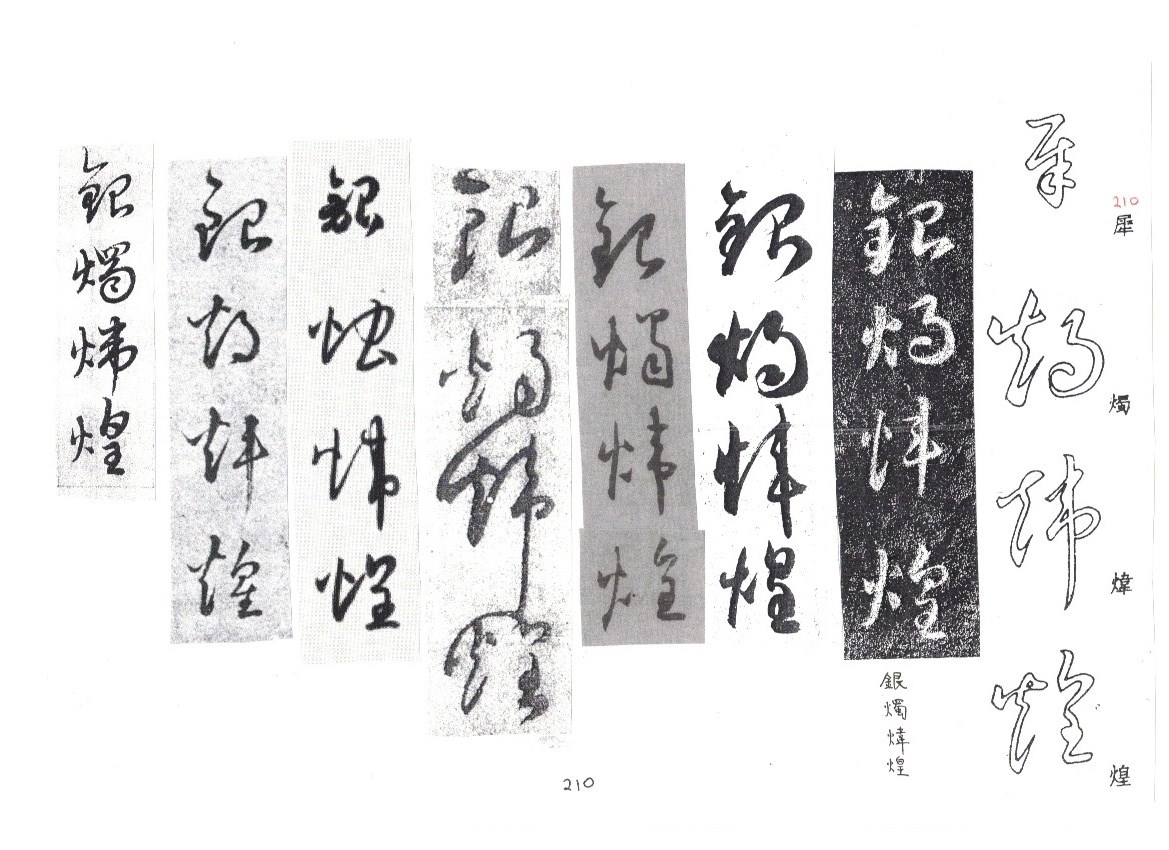 210
犀燭煒煌
犀燭煒煌
銀燭煒煌
銀燭煒煌
銀燭煒煌
銀燭煒煌
銀燭煒煌
銀燭煒煌
銀燭煒煌
銀燭煒煌
210